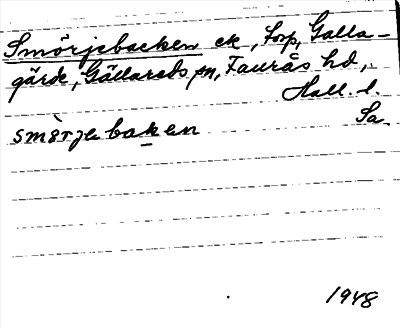 Smörjebacken ek, torp, Galla-
gärde, Gällareds sn, Faurås hd,
Hall. l.
smörjebaken
Sa.
1948